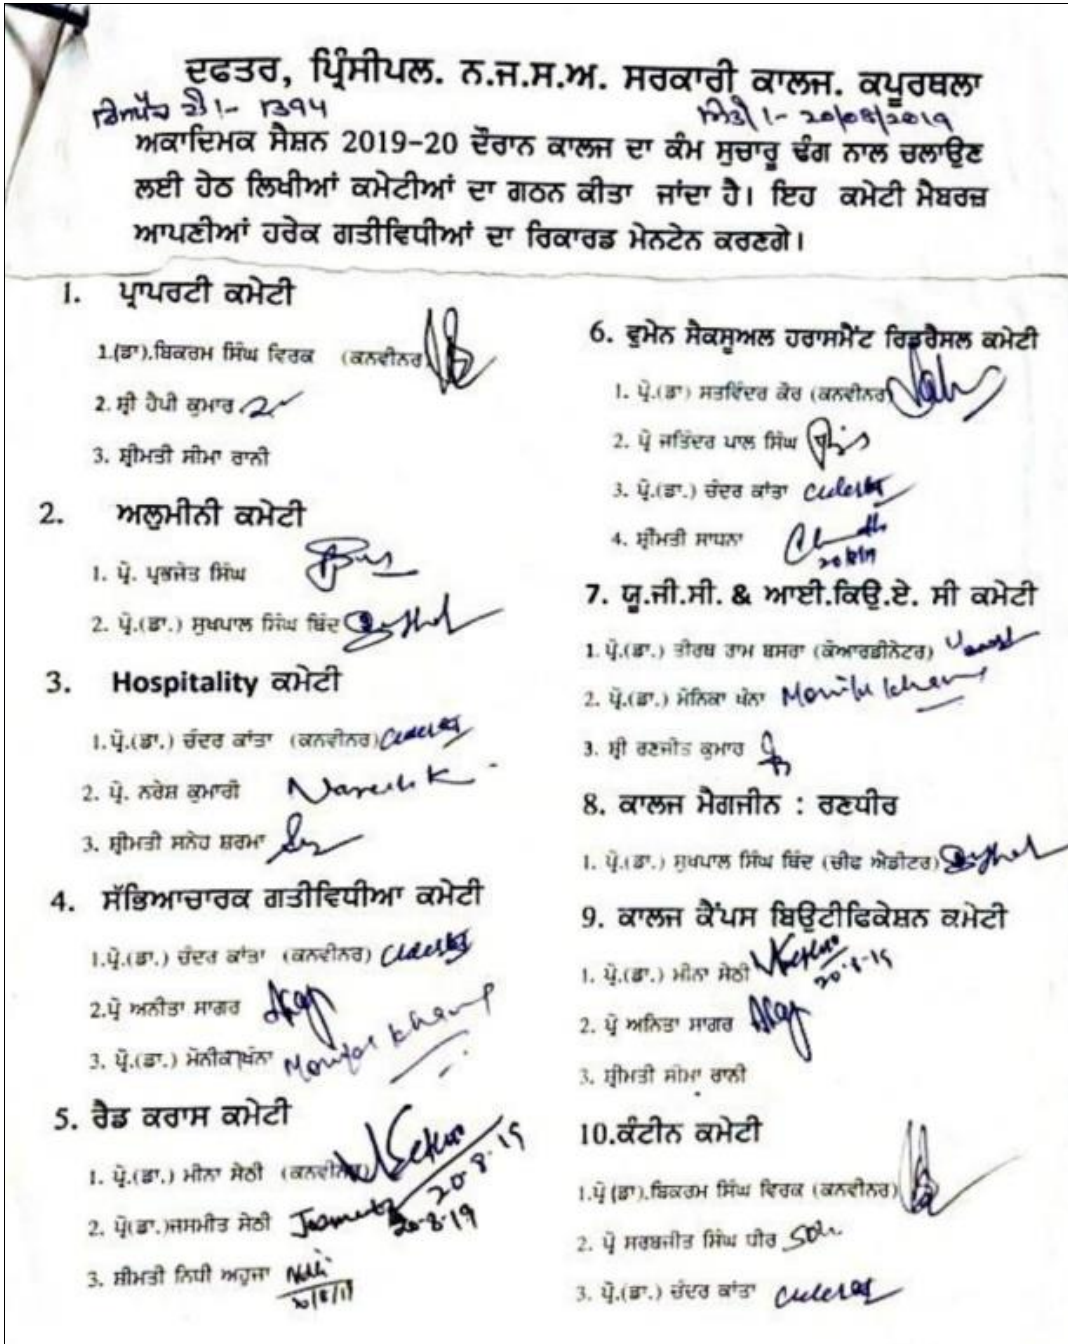 ਦਫਤਰ, ਪ੍ਰਿੰਸੀਪਲ. ਨ.ਜ.ਸ.ਅ. ਸਰਕਾਰੀ ਕਾਲਜ. ਕਪੂਰਥਲਾ
ਡਿਸਪੈਚ ਨੰ:- 1394 ਮਿਤੀ:- 20/08/2019
ਅਕਾਦਿਮਕ ਸੈਸ਼ਨ 2019-20 ਦੌਰਾਨ ਕਾਲਜ ਦਾ ਕੰਮ ਸੁਚਾਰੂ ਢੰਗ ਨਾਲ ਚਲਾਉਣ
ਲਈ ਹੇਠ ਲਿਖੀਆਂ ਕਮੇਟੀਆਂ ਦਾ ਗਠਨ ਕੀਤਾ ਜਾਂਦਾ ਹੈ। ਇਹ ਕਮੇਟੀ ਮੈਬਰਜ਼
ਆਪਣੀਆਂ ਹਰੇਕ ਗਤੀਵਿਧੀਆਂ ਦਾ ਰਿਕਾਰਡ ਮੇਨਟੇਨ ਕਰਣਗੇ।
1. ਪ੍ਰਾਪਰਟੀ ਕਮੇਟੀ
1.(ਡਾ).ਬਿਕਰਮ ਸਿੰਘ ਵਿਰਕ (ਕਨਵੀਨਰ)
2. ਸ਼੍ਰੀ ਹੈਪੀ ਕੁਮਾਰ
3. ਸ਼੍ਰੀਮਤੀ ਸੀਮਾ ਰਾਨੀ
2. ਅਲੁਮੀਨੀ ਕਮੇਟੀ
1. ਪ੍ਰੋ. ਪ੍ਰਭਜੋਤ ਸਿੰਘ
2. ਪ੍ਰੋ.(ਡਾ.) ਸੁਖਪਾਲ ਸਿੰਘ ਥਿੰਦ
3. Hospitality ਕਮੇਟੀ
1.ਪ੍ਰੋ.(ਡਾ.) ਚੰਦਰ ਕਾਂਤਾ (ਕਨਵੀਨਰ)
2. ਪ੍ਰੋ. ਨਰੇਸ਼ ਕੁਮਾਰੀ Naresh K
3. ਸ਼੍ਰੀਮਤੀ ਸਨੇਹ ਸ਼ਰਮਾ
4. ਸੱਭਿਆਚਾਰਕ ਗਤੀਵਿਧੀਆ ਕਮੇਟੀ
1.ਪ੍ਰੋ.(ਡਾ.) ਚੰਦਰ ਕਾਂਤਾ (ਕਨਵੀਨਰ)
2.ਪ੍ਰੋ ਅਨੀਤਾ ਸਾਗਰ
3. ਪ੍ਰੋ.(ਡਾ.) ਮੋਨੀਕਾ ਖੰਨਾ Monika Khanna
5. ਰੈਡ ਕਰਾਸ ਕਮੇਟੀ
1. ਪ੍ਰੋ.(ਡਾ.) ਮੀਨਾ ਸੇਠੀ (ਕਨਵੀਨਰ) 20.8.19
2. ਪ੍ਰੋ(ਡਾ.)ਜਸਮੀਤ ਸੇਠੀ 20.8.19
3. ਸ਼ੀਮਤੀ ਨਿਧੀ ਅਹੂਜਾ Nidhi
6. ਵੁਮੇਨ ਸੈਕਸੂਅਲ ਹਰਾਸਮੈਂਟ ਰਿਡਰੈਸਲ ਕਮੇਟੀ
1. ਪ੍ਰੋ.(ਡਾ) ਸਤਵਿੰਦਰ ਕੌਰ (ਕਨਵੀਨਰ)
2. ਪ੍ਰੋ ਜਤਿੰਦਰ ਪਾਲ ਸਿੰਘ
3. ਪ੍ਰੋ.(ਡਾ.) ਚੰਦਰ ਕਾਂਤਾ
4. ਸ਼੍ਰੀਮਤੀ ਸਾਧਨਾ
7. ਯੂ.ਜੀ.ਸੀ. & ਆਈ.ਕਿਉ.ਏ. ਸੀ ਕਮੇਟੀ
1. ਪ੍ਰੋ.(ਡਾ.) ਤੀਰਥ ਰਾਮ ਬਸਰਾ (ਕੋਆਰਡੀਨੇਟਰ)
2. ਪ੍ਰੋ.(ਡਾ.) ਮੋਨਿਕਾ ਖੰਨਾ Monika Khanna
3. ਸ਼੍ਰੀ ਰਣਜੀਤ ਕੁਮਾਰ
8. ਕਾਲਜ ਮੈਗਜੀਨ : ਰਣਧੀਰ
1. ਪ੍ਰੋ.(ਡਾ.) ਸੁਖਪਾਲ ਸਿੰਘ ਥਿੰਦ (ਚੀਫ ਐਡੀਟਰ)
9. ਕਾਲਜ ਕੈਂਪਸ ਬਿਊਟੀਫਿਕੇਸ਼ਨ ਕਮੇਟੀ
1. ਪ੍ਰੋ.(ਡਾ.) ਮੀਨਾ ਸੇਠੀ 20.8.19
2. ਪ੍ਰੋ ਅਨਿਤਾ ਸਾਗਰ
3. ਸ਼੍ਰੀਮਤੀ ਸੀਮਾ ਰਾਨੀ
10.ਕੰਟੀਨ ਕਮੇਟੀ
1.ਪ੍ਰੋ (ਡਾ).ਬਿਕਰਮ ਸਿੰਘ ਵਿਰਕ (ਕਨਵੀਨਰ)
2. ਪ੍ਰੋ ਸਰਬਜੀਤ ਸਿੰਘ ਧੀਰ
3. ਪ੍ਰੋ.(ਡਾ.) ਚੰਦਰ ਕਾਂਤਾ